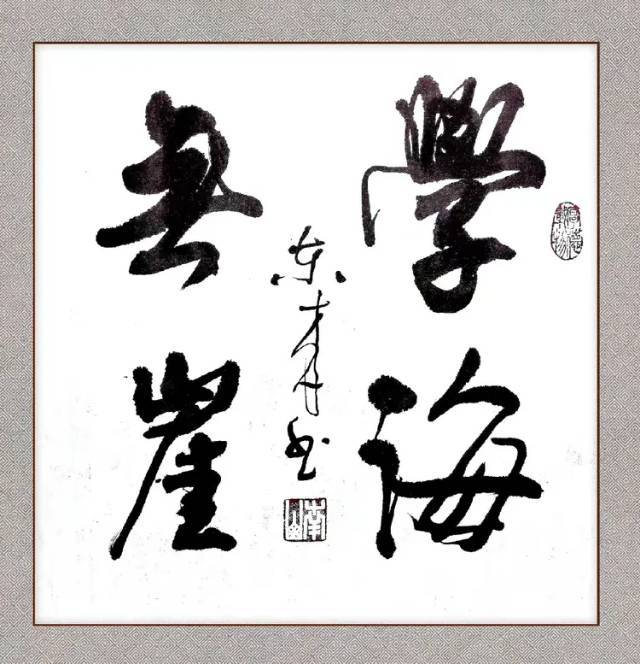 學海
無崖
东
书